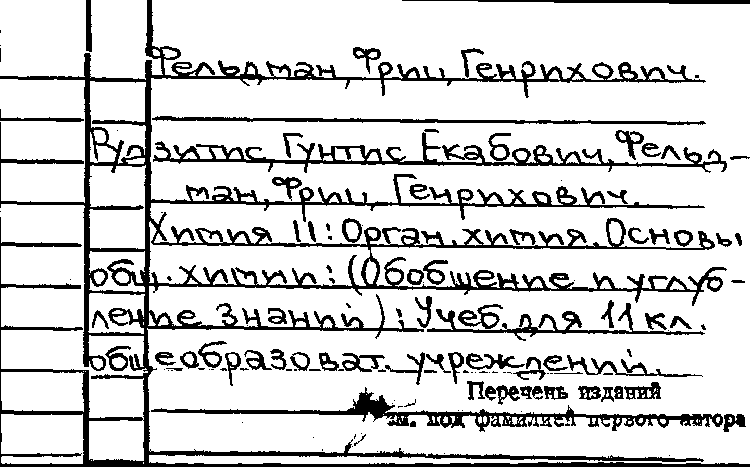 Фельдман, Фриц Генрихович.
Рудзитис, Гунтис Екабович, Фельд-
ман, Фриц Генрихович.
Химия 11: Орган. химия. Основы
общ. химии: (Обобщение и углуб-
ление знаний): Учеб. для 11 кл.
общеобразоват. учреждений.
Перечень изданий
см. под фамилией первого автора